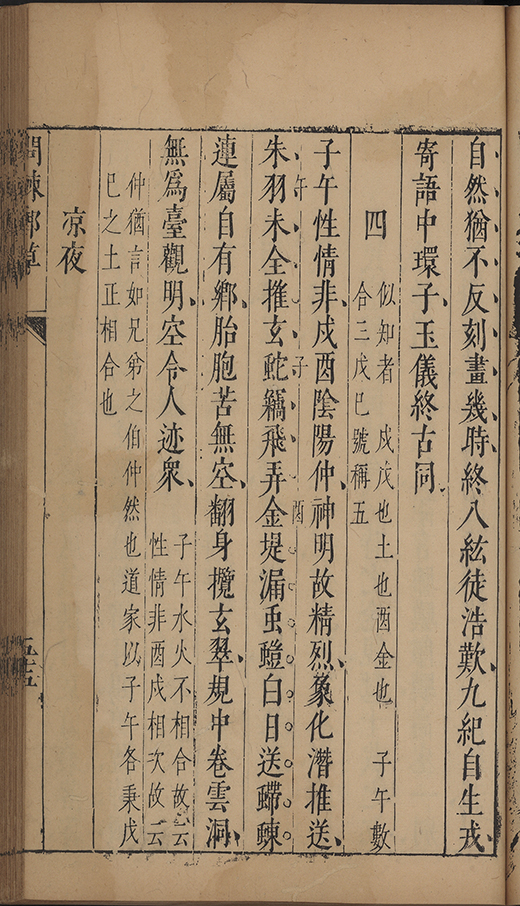 自然猶不反刻畫幾時終八紘徒浩歎九紀自生戎
寄語中環子玉儀終古同
四
似知者 戍戊也土也酉金也 子午數
合三戊巳號稱五
子午性情非戌酉陰陽仲神明故精烈象化潛推送
午 子 酉
朱羽未全推玄蛇飛弄金堤漏白日送蝀
連屬自有鄉胎胞苦無空翻身攬玄翠規中卷雲洞
無爲臺觀明空令人迹衆
子午水火不相合故云
性情非酉戌相次故云
仲猶言如兄弟之伯仲然也道家以子午各秉戊
巳之土正相合也
凉夜
問棘郵草